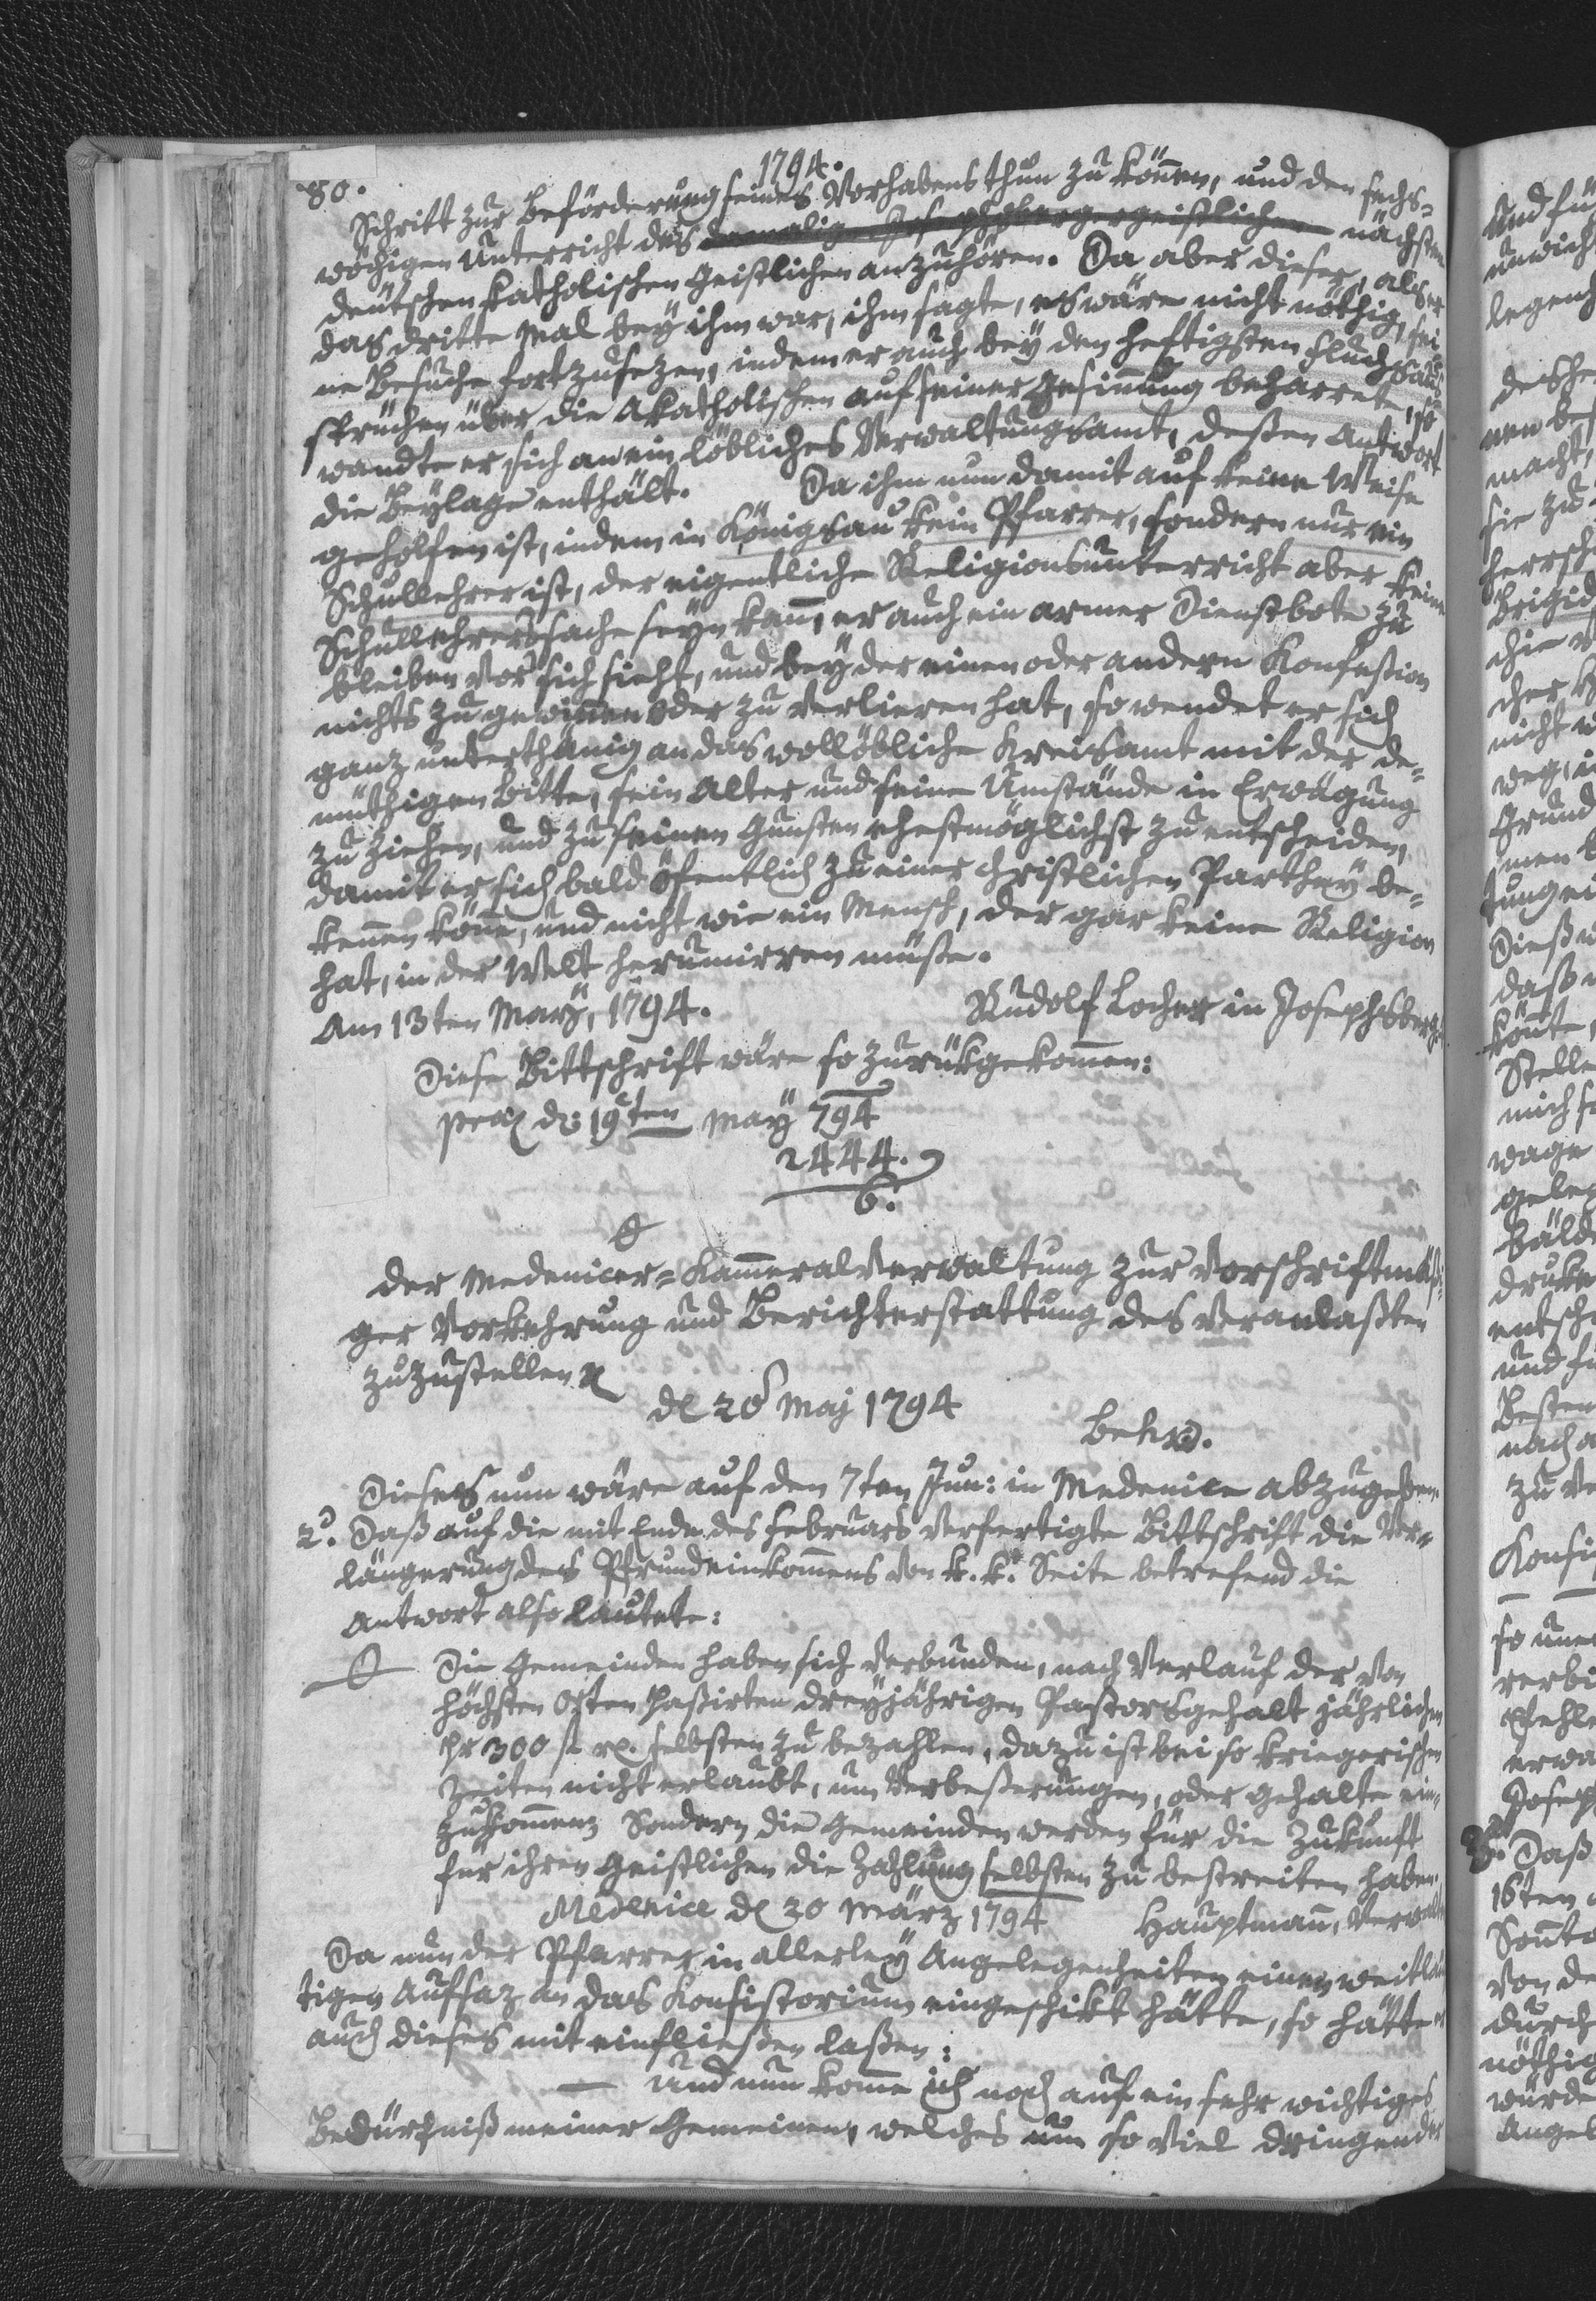 80.
1794.
Schritt zur Beförderung seines Vorhabens thun zu können, und den sechs-
wöchigen Unterricht des damalig. Josephsbergergeistlichen nächsten
deutschen katholischen Geistlichen anzuhören. Da aber dieser, als er
das dritte Mal bey ihm war, ihm sagte, es wäre nicht nöthig, sei
ne Besuche fortzusezen, indem er auch bey den heftigsten Fluchaus
sprüchen über die Akatholischen auf seiner Gesinnung beharrete, so
wandte er sich an ein löbliches Verwaltungsamt, deßen Antwort
die Beylage enthält. Da ihm nun damit auf keine Weise
geholfen ist, indem in Königsau kein Pfarrer, sondern nur ein
Schullehrer ist, der eigentliche Religionsunterricht aber keine
Schullehrerssache seyn kann, er auch ein armer Dienstbote zu
bleiben vor sich sieht, und bey der einen oder andern Konfeßion
nichts zu gewinnen oder zu verlieren hat, so wendet er sich
ganz unterthänig an das wollöbliche Kreisamt mit der de-
müthigen Bitte, sein Alter und seine Umstände in Erwägung
zu ziehen, und zu seinen Gunsten ehestmöglichst zu entscheiden,
damit er sich bald öfentlich zu einer christlichen Parthey be-
kennen könne, und nicht wie ein Mensch, der gar keine Religion
hat, in der Welt herumirren müße.
Am 13ten May, 1794.
Rudolf Locher in Josephsberg
Diese Bittschrift wäre so zurükgekommen:
d. 19ten May 794
2444.
6.
Der Medenicer-Kammeralverwaltung zur vorschriftmäßi-
ger Vorkehrung und Berichterstattung des Veranlaßten
zuzustellen
d 20 Maj 1794
Dieses nun wäre auf den 7ten Jun: in Medenice abzugeben
2. Daß auf die mit Ende des Februars verfertigte Bittschrift die Ver-
längerung des Pfrundeinkommens von k. k. Seite betrefend die
Antwort also lautete:
Die Gemeinden haben sich verbunden, nach Verlauf der von
höchsten Orten paßirten dreyjährigen Pastorsgehalt jährlichen
pr 300 f selbsten zu bezahlen, dazu ist bei so kriegerischen
Zeiten nicht erlaubt, um Verbeßerungen, oder Gehalte ein-
zukommen Sondern die Gemeinden werden für die Zukunft
für ihren Geistlichen die Zahlung selbsten zu bestreiten haben.
Medenice d 20 März 1794
Hauptmann, Verwalter
Da nun der Pfarrer in allerley Angelegenheiten einen weitläu
tigen Aufsaz an das Konsistorium eingeschikt hätte, so hätte er
auch dieses mit einfließen laßen:
— Und nun komme ich noch auf ein sehr wichtiges
Bedürfniß meiner Gemeinen, welches um so viel dringender